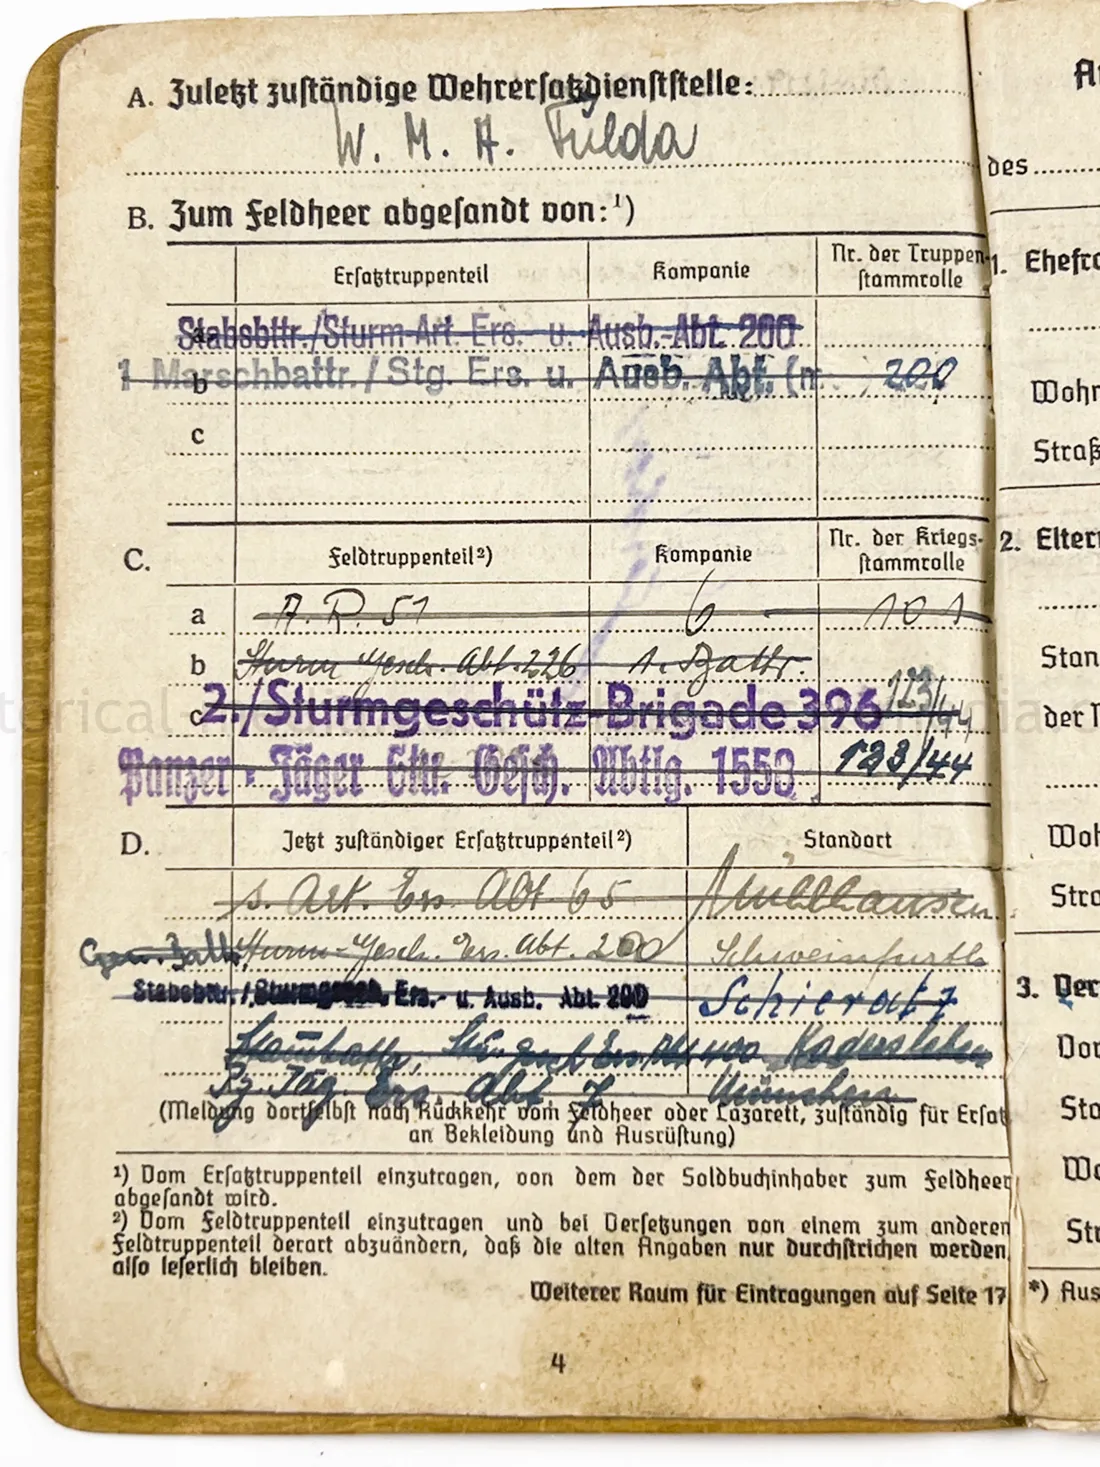 A. Zuletzt zuständige Wehrersatzdienststelle:
W. M. A. Fulda
B. Zum Feldheer abgesandt von:¹)
Ersatztruppenteil Kompanie Nr. der Truppen-
stammrolle
a Stabsbttr./Sturm-Art. Ers. u. Ausb.-Abt. 200
b 1 Marschbattr. / Stg. Ers. u. Ausb. Abt. 200
c
C. Feldtruppenteil²) Kompanie Nr. der Kriegs-
stammrolle
a A. R. 51 6 101
b Sturm Gesch. Abt. 226 1. Battr.
c 2./Sturmgeschütz-Brigade 396 123/44
Panzer-Jäger Stu. Gesch. Abtlg. 1550 123/44
D. Jetzt zuständiger Ersatztruppenteil²) Standort
s. Art. Ers. Abt 65 Mühlhausen
Sturm-Gesch. Ers. Abt. 200 Schweinfurth
Stabsbttr./Sturmgesch. Ers.- u. Ausb. Abt. 200 Schieratz
Ers. Abt 400 Hadersleben
Pz. Jäg. Ers. Abt 7 München
(Meldung dortselbst nach Rückkehr vom Feldheer oder Lazarett, zuständig für Ersat
an Bekleidung und Ausrüstung)
¹) Vom Ersatztruppenteil einzutragen, von dem der Soldbuchinhaber zum Feldheer
abgesandt wird.
²) Vom Feldtruppenteil einzutragen und bei Versetzungen von einem zum anderen
Feldtruppenteil derart abzuändern, daß die alten Angaben nur durchstrichen werden,
also leserlich bleiben.
Weiterer Raum für Eintragungen auf Seite 17
4
des
1. Ehefra
Wohn
Straß
2. Eltern
Stan
der
Woh
Stra
3. Ver
Vor
Sta
Wo
Str
*) Aus